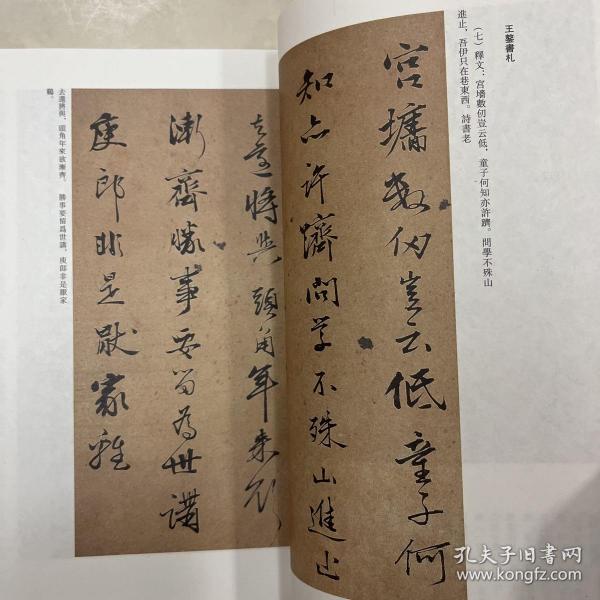 王鏊書札
（七）釋文：宮墻數仞豈云低，童子何知亦許躋。問學不殊山
進止，吾伊只在巷東西。詩書老
宮墻數仞豈云低童子何
知亦許躋問學不殊山進止
去還將與頭角年來欲
漸齊勝事要留為世講
庾郎非是厭家雞
去還將與，頭角年來欲漸齊。勝事要留爲世講，庾郎非是厭家
鷄。
孔夫子旧书网
www.kongfz.com